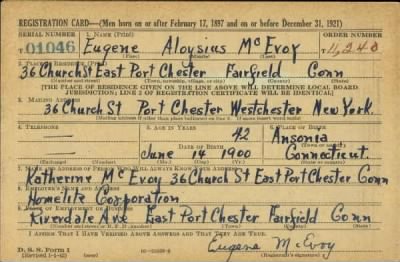 REGISTRATION CARD—(Men born on or after February 17, 1897 and on or before December 31, 1921)
SERIAL NUMBER 1. NAME (Print) ORDER NUMBER
U1046 Eugene Aloysius McEvoy 11,240
(First) (Middle) (Last)
2. PLACE OF RESIDENCE (Print)
36 Church St East Port Chester Fairfield Conn.
(Number and street) (Town, township, village, or city) (County) (State)
[THE PLACE OF RESIDENCE GIVEN ON THE LINE ABOVE WILL DETERMINE LOCAL BOARD
JURISDICTION; LINE 2 OF REGISTRATION CERTIFICATE WILL BE IDENTICAL]
3. MAILING ADDRESS
36 Church St Port Chester Westchester New York.
[Mailing address if other than place indicated on line 2. If same insert word same]
4. TELEPHONE 5. AGE IN YEARS 6. PLACE OF BIRTH
— 42 Ansonia
DATE OF BIRTH (Town or county)
— June 14 1900 Connecticut.
(Exchange) (Number) (Mo.) (Day) (Yr.) (State or country)
7. NAME AND ADDRESS OF PERSON WHO WILL ALWAYS KNOW YOUR ADDRESS
Katherine McEvoy 36 Church St East Port Chester Conn
8. EMPLOYER'S NAME AND ADDRESS
Homelite Corporation
9. PLACE OF EMPLOYMENT OR BUSINESS
Riverdale Ave East Port Chester Fairfield Conn
(Number and street or R. F. D. number) (Town) (County) (State)
I AFFIRM THAT I HAVE VERIFIED ABOVE ANSWERS AND THAT THEY ARE TRUE.
D. S. S. Form 1 Eugene McEvoy
(Revised 1-1-42) (Registrant's signature)